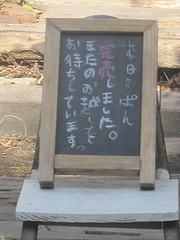 本日のぱん
完売しました。
またのお越しを
お待ちしています。